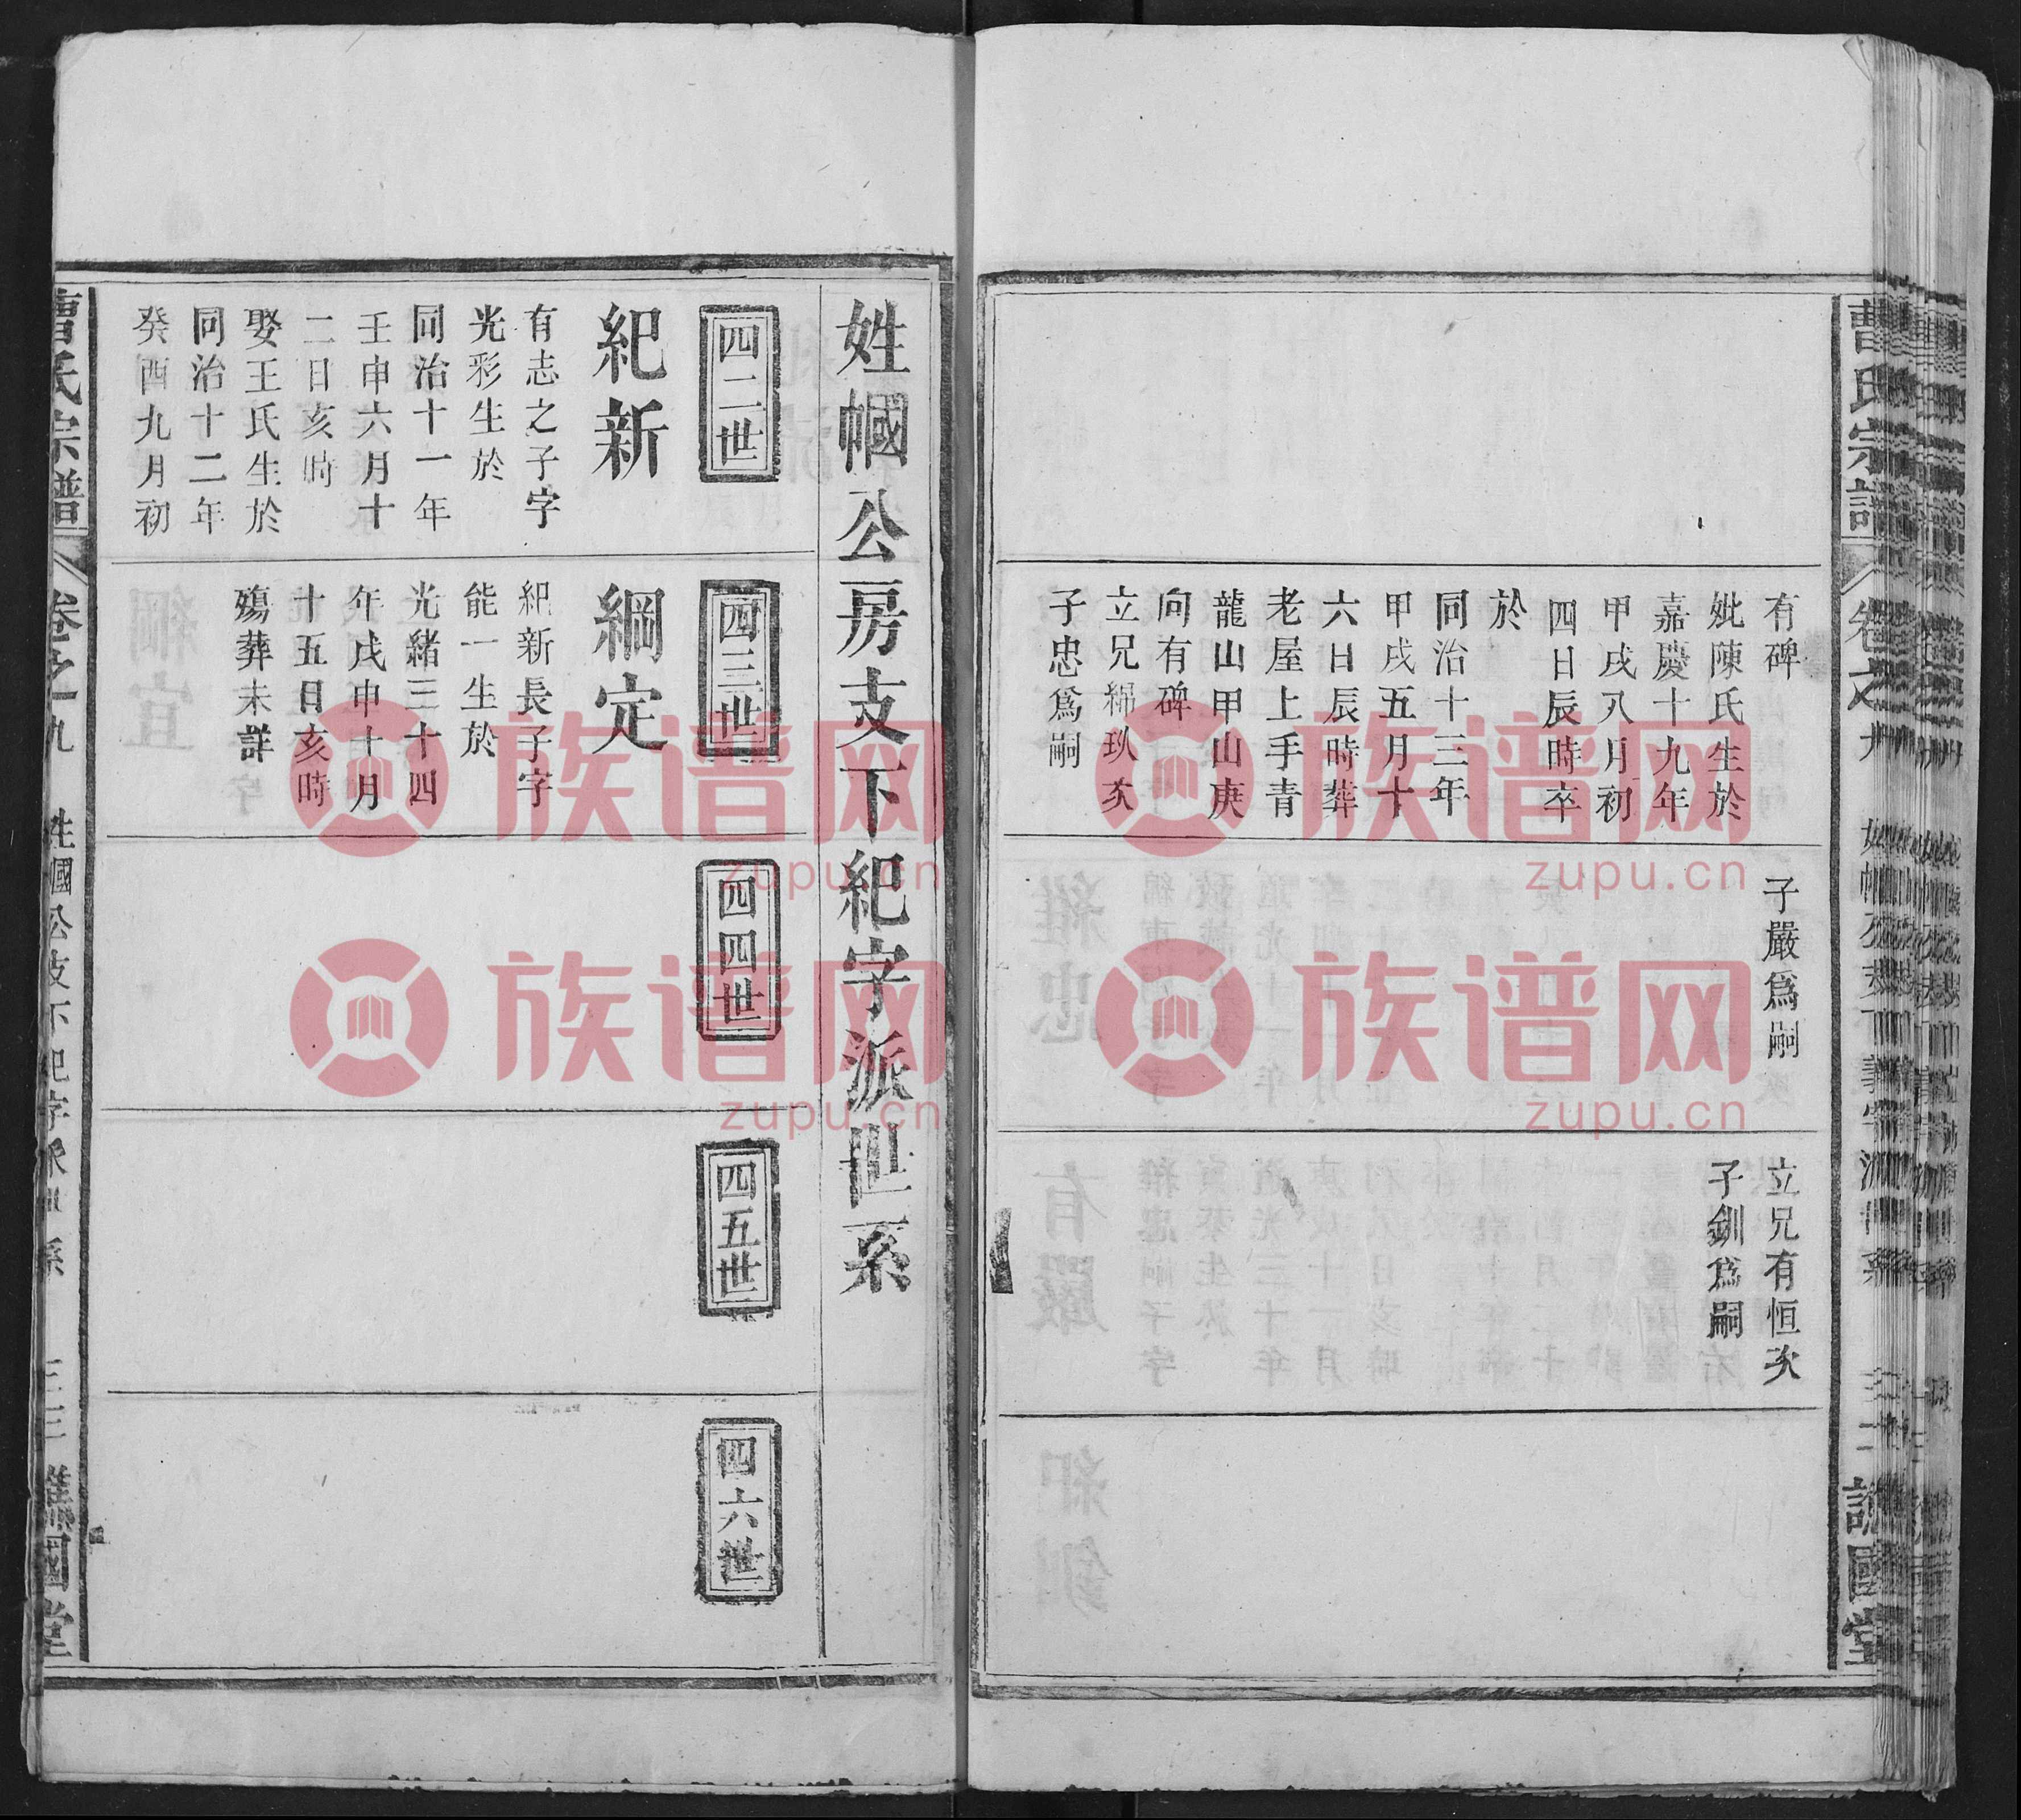 曹氏宗譜
卷之九
有碑
妣陳氏生於
嘉慶十九年
甲戌八月初
四日辰時卒
於
同治十三年
甲戌五月十
六日辰時葬
老屋上手青
龍山甲山庚
向有碑
立兄綿玖次
子忠爲嗣
子嚴爲嗣
立兄有恒次
子釧爲嗣
姓幗公房支下紀字派世系
四二世
紀新
有志之子字
光彩生於
同治十一年
壬申六月十
二日亥時
娶王氏生於
同治十二年
癸酉九月初
四三世
綱定
紀新長子字
能一生於
光緒三十四
年戊申十月
十五日亥時
殤葬未詳
四四世
四五世
四六世
曹氏宗譜
卷之九
族谱网
zupu.cn
族谱网
zupu.cn
族谱网
zupu.cn
族谱网
zupu.cn